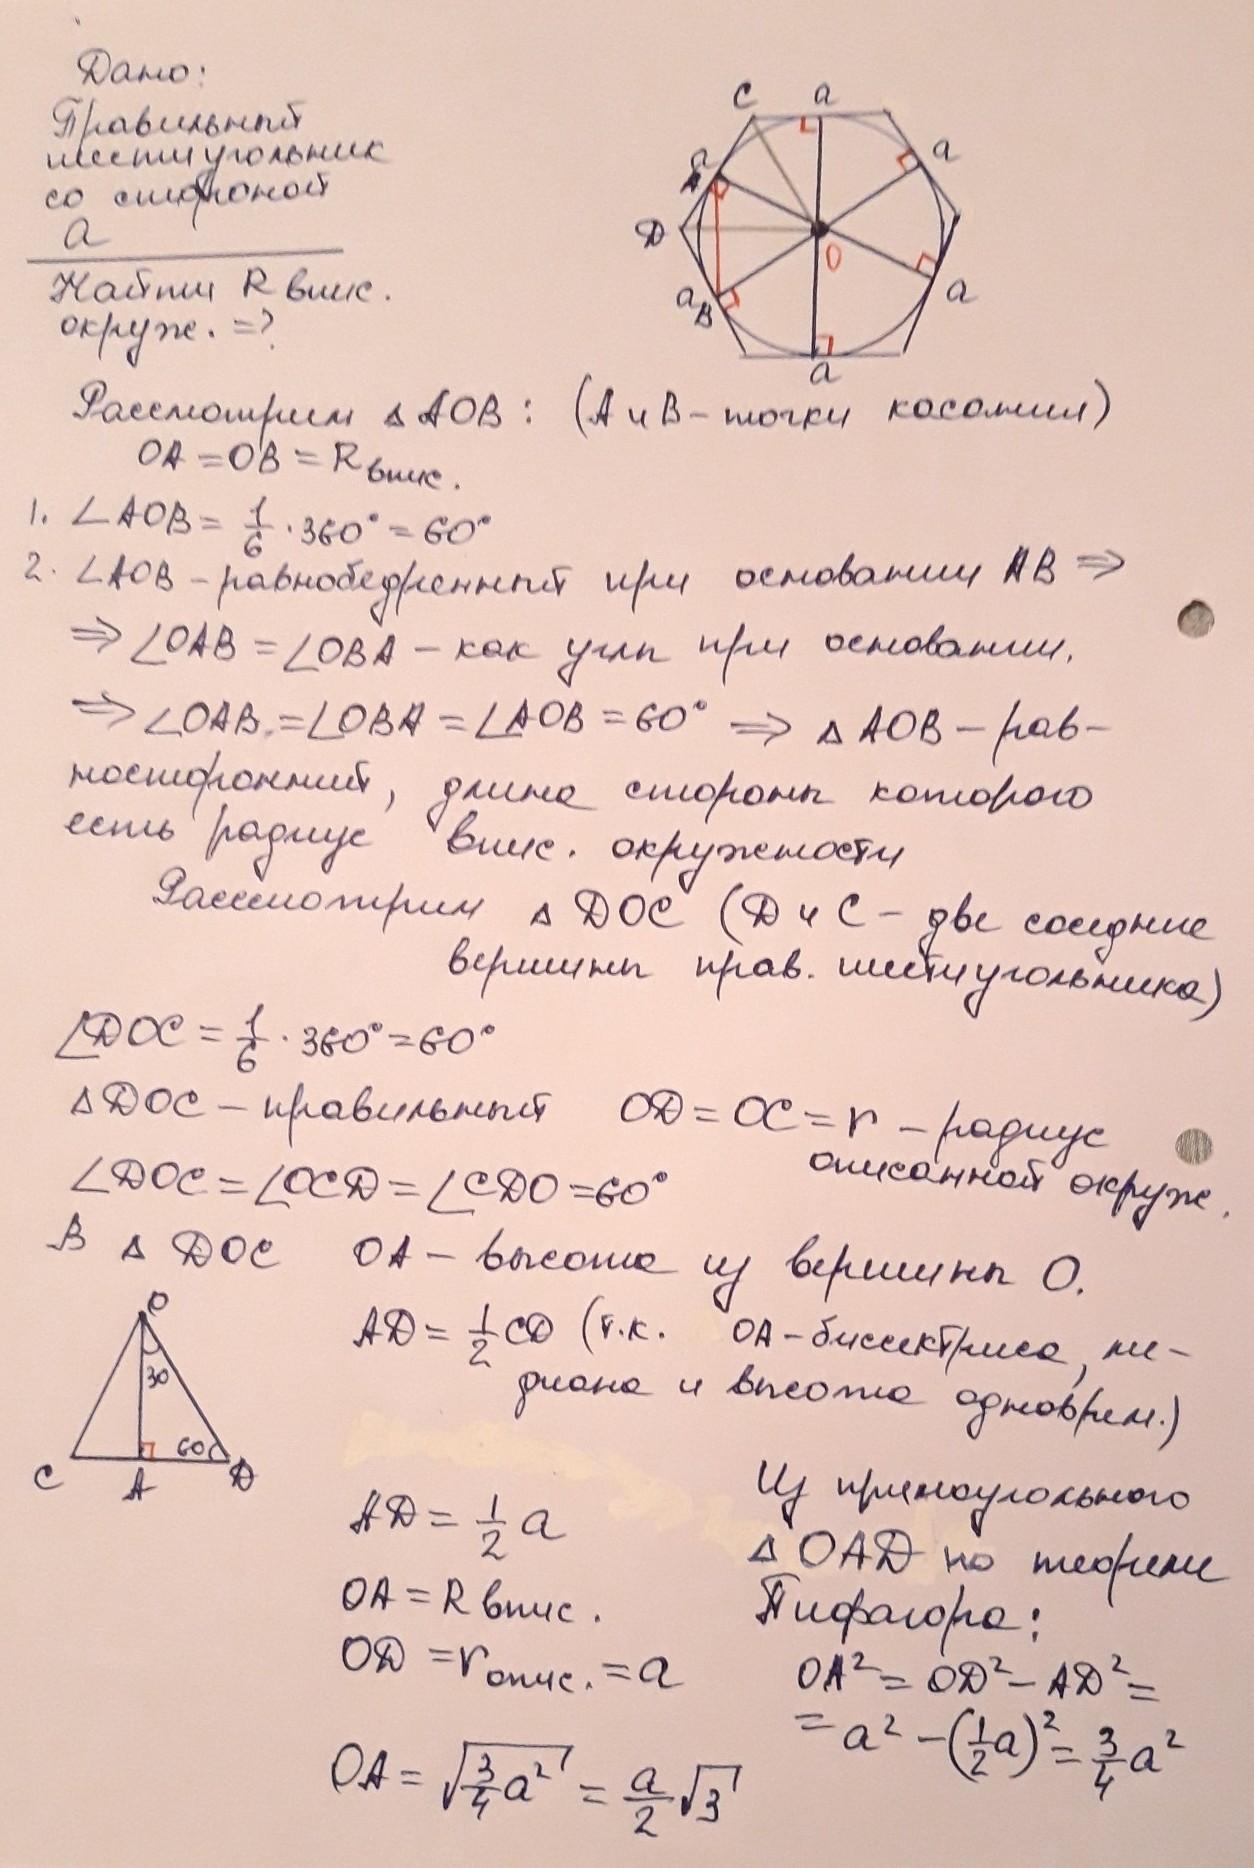 Дано:
Правильный
шестиугольник
со стороной
a
Найти R впис.
окруж. =?
C a
a a
A
D
O
a a
B
a
Рассмотрим △AOB: (A и B – точки касания)
OA = OB = R впис.
1. ∠AOB = 1/6 · 360° = 60°
2. ∠AOB – равнобедренный при основании AB ⇒
⇒ ∠OAB = ∠OBA – как углы при основании.
⇒ ∠OAB = ∠OBA = ∠AOB = 60° ⇒ △AOB – рав-
носторонний, длина стороны которого
есть радиус впис. окружности
Рассмотрим △DOC (D и C – две соседние
вершины прав. шестиугольника)
∠DOC = 1/6 · 360° = 60°
△DOC – правильный OD = OC = r – радиус
описанной окруж.
∠DOC = ∠OCD = ∠CDO = 60°
В △DOC OA – высота из вершины O.
O
30
60
C A D
AD = 1/2 CD (т.к. OA – биссектриса, ме-
диана и высота одноврем.)
AD = 1/2 a
OA = R впис.
OD = r опис. = a
Из прямоугольного
△OAD по теореме
Пифагора:
OA² = OD² – AD² =
= a² – (1/2 a)² = 3/4 a²
OA = √(3/4 a²) = a/2 √3